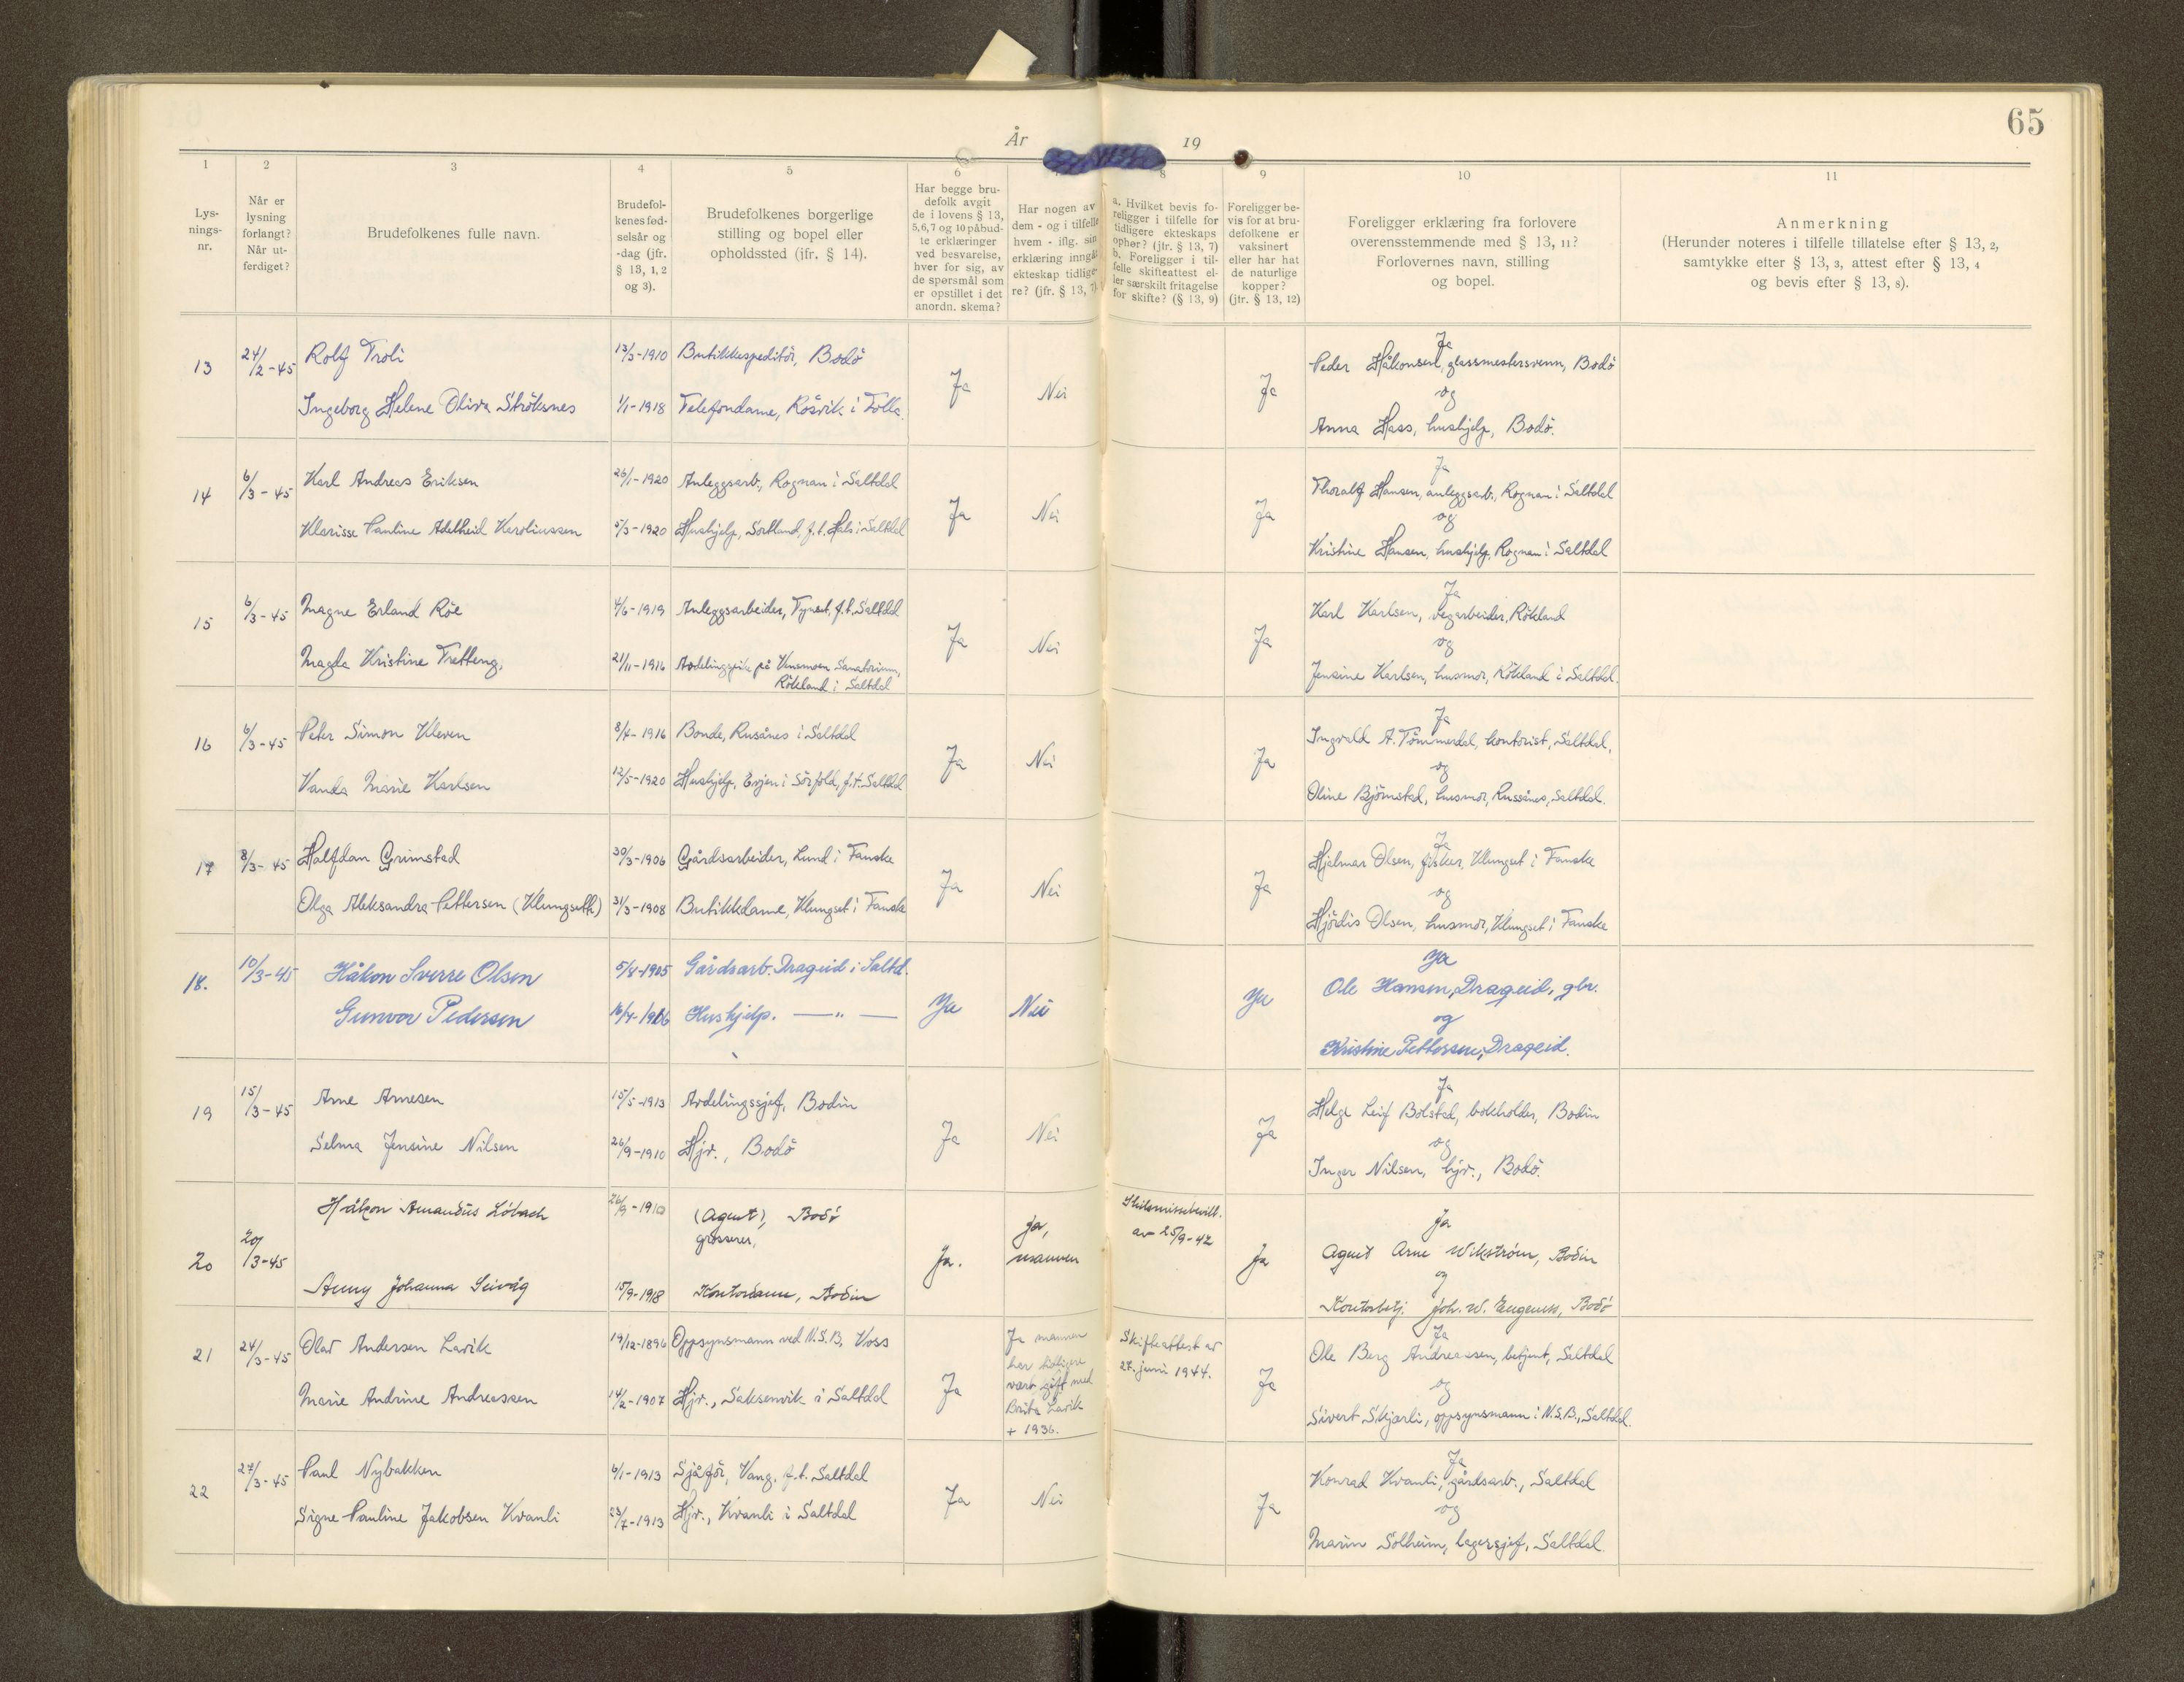 65
År 19
1 2 3 4 5 6 8 9 10 11
Lys-
nings-
nr.
Når er
lysning
forlangt?
Når ut-
ferdiget?
Brudefolkenes fulle navn.
Brudefol-
kenes fød-
selsår og
-dag (jfr.
§ 13, 1, 2
og 3).
Brudefolkenes borgerlige
stilling og bopel eller
opholdssted (jfr. § 14).
Har begge bru-
defolk avgit
de i lovens § 13,
5,6,7 og 10 påbud-
te erklæringer
ved besvarelse,
hver for sig, av
de spørsmål som
er opstillet i det
anordn. skema?
Har nogen av
dem - og i tilfelle
hvem - iflg. sin
erklæring inngåt
ekteskap tidlige-
re? (jfr. § 13, 7).
a. Hvilket bevis fo-
religger i tilfelle for
tidligere ekteskaps
ophør? (jfr. § 13, 7)
b. Foreligger i til-
felle skifteattest el-
ler særskilt fritagelse
for skifte? (§ 13, 9)
Foreligger be-
vis for at bru-
defolkene er
vaksinert
eller har hat
de naturlige
kopper?
(jfr. § 13, 12)
Foreligger erklæring fra forlovere
overensstemmende med § 13, 11?
Forlovernes navn, stilling
og bopel.
Anmerkning
(Herunder noteres i tilfelle tillatelse efter § 13, 2,
samtykke efter § 13, 3, attest efter § 13, 4
og bevis efter § 13, 8).
13 24/2-45 Rolf Troli 13/3-1910 Butikkekspeditör, Bodö
Ingeborg Helene Oliva Ströksnes 1/1-1918 Telefondame, Rösvik i Folla.
Ja Nei Ja
Ja
Peder Håkonsen, glassmestersvenn, Bodö
og
Anna Hass, hushjelp, Bodö.
14 6/3-45 Karl Andreas Eriksen 26/1-1920 Anleggsarb., Rognan i Saltdal
Klarisse Pauline Adelheid Karoliussen 5/3-1920 Hushjelp, Sortland, f.t. Hals i Saltdal
Ja Nei Ja
Ja
Thoralf Hansen, anleggsarb., Rognan i Saltdal
og
Kristine Hansen, hushjelp, Rognan i Saltdal
15 6/3-45 Magne Erland Röe 4/6-1919 Anleggsarbeider, Tynset, f.t. Saltdal
Magda Kristine Tretteng, 21/11-1916 Avdelingspike på Vensmoen Sanatorium,
Rökland i Saltdal
Ja Nei Ja
Ja
Karl Karlsen, vegarbeider, Rökland
og
Jensine Karlsen, husmor, Rökland i Saltdal.
16 6/3-45 Peter Simon Kleven 8/4-1916 Bonde, Rusånes i Saltdal
Vanda Marie Karlsen 12/5-1920 Hushjelp, Evjen i Sörfold, f.t. Saltdal
Ja Nei Ja
Ja
Ingvald A. Tömmerdal, kontorist, Saltdal,
og
Oline Björnstad, husmor, Russånes, Saltdal.
17 8/3-45 Halfdan Grimstad 30/3-1906 Gårdsarbeider, Lund i Fauske
Olga Aleksandra Pettersen (Klungseth) 31/3-1908 Butikkdame, Klungset i Fauske
Ja Nei Ja
Ja
Hjalmar Olsen, fisker, Klungset i Fauske
og
Hjördis Olsen, husmor, Klungset i Fauske
18. 10/3-45 Håkon Sverre Olsen 5/8-1905 Gårdsarb. Drageid i Saltd.
Gunvor Pedersen 16/4-1916 Hushjelp. — " —
Ja Nei Ja
Ja
Ole Hansen, Drageid, gbr.
og
Kristine Pettersen, Drageid.
19 15/3-45 Arne Arnesen 15/5-1913 Avdelingssjef, Bodin
Selma Jensine Nilsen 26/9-1910 Hjv., Bodö
Ja Nei Ja
Ja
Helge Leif Bolstad, bokholder, Bodin
og
Inger Nilsen, hjv., Bodö.
20 20/3-45 Håkon Amandus Löbach 26/9-1910 (Agent), Bodö
grosserer,
Jenny Johanna Seivåg 15/9-1918 Kontordame, Bodin
Ja. ja,
mannen
Skilsmissebevill.
av 25/9-42
Ja
Ja
Agent Arne Wikström, Bodin
og
Kontorbetj. Joh. W. Eugenius, Bodö
21 24/3-45 Olav Andersen Lavik 19/12-1896 Oppsynsmann ved N.S.B., Voss
Marie Andrine Andreassen 14/2-1907 Hjv., Saksenvik i Saltdal
Ja
Ja mannen
har tidligere
vært gift med
Brita Lavik
+ 1936.
Skifteattest av
27. juni 1944.
Ja
Ja
Ole Berg Andreassen, betjent, Saltdal
og
Sivert Skjærli, oppsynsmann i N.S.B., Saltdal
22 27/3-45 Paul Nybakken 6/1-1913 Sjåför, Vang, f.t. Saltdal
Signe Pauline Jakobsen Kvanli 23/7-1913 Hjv., Kvanli i Saltdal
Ja Nei Ja
Ja
Konrad Kvanli, gårdsarb., Saltdal
og
Marin Solheim, lagersjef, Saltdal.